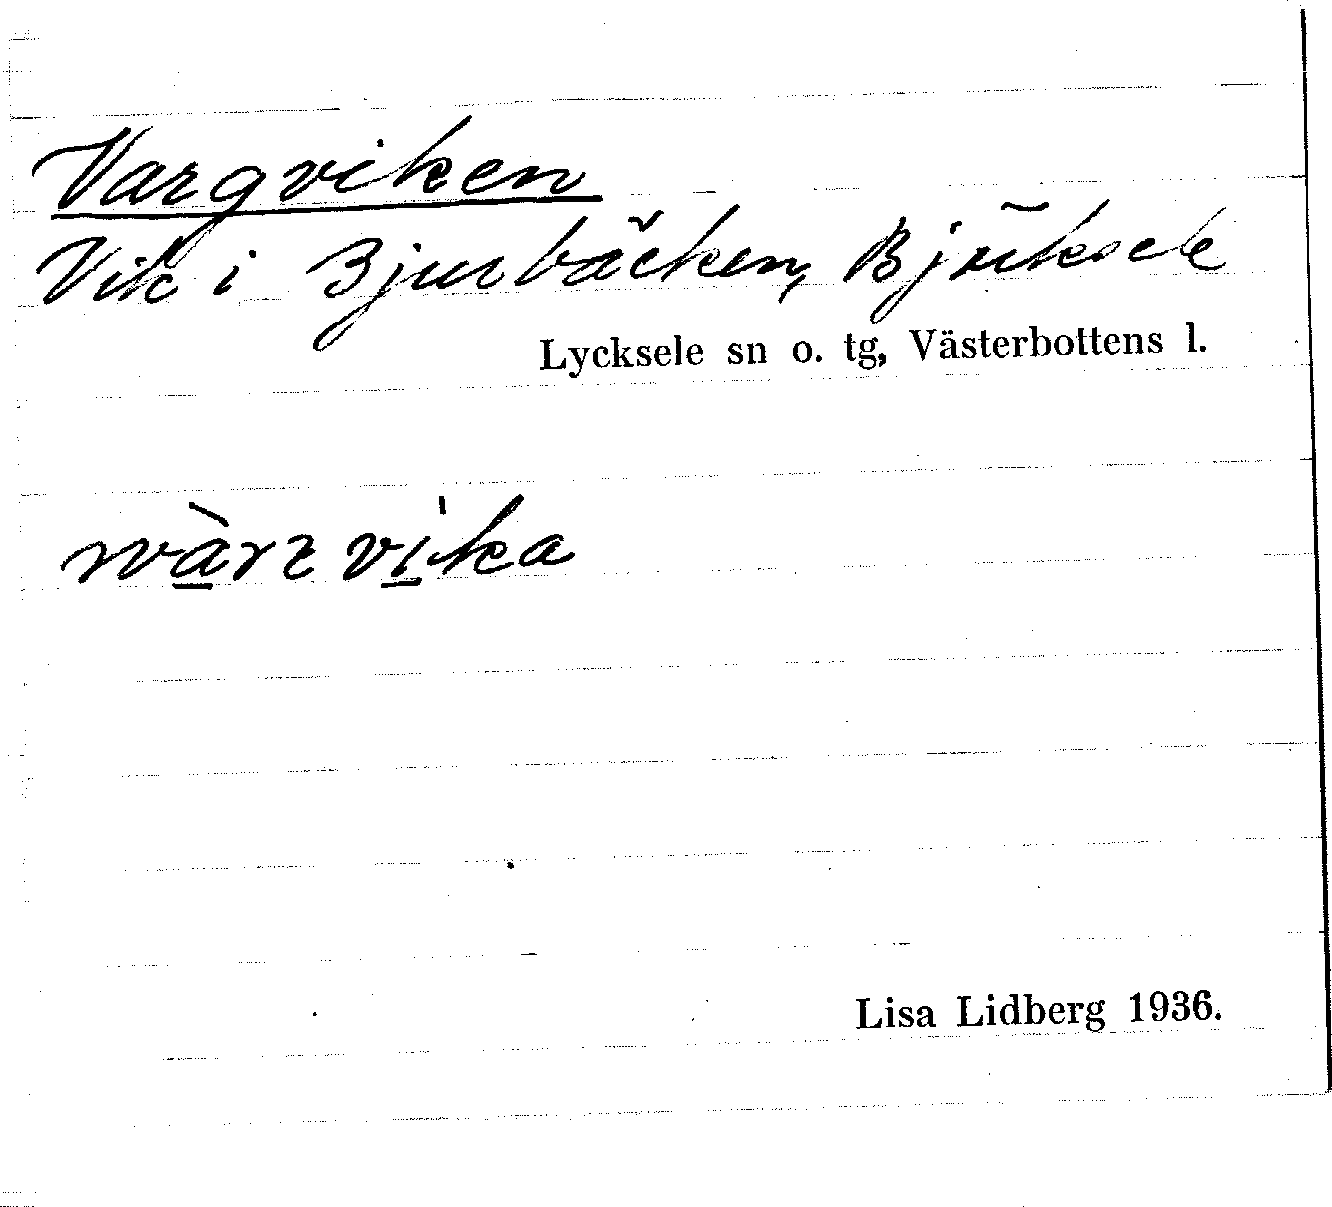 Vargviken
Vik i Bjurbäcken, Bjuksele
Lycksele sn o. tg, Västerbottens l.
Lisa Lidberg 1936.